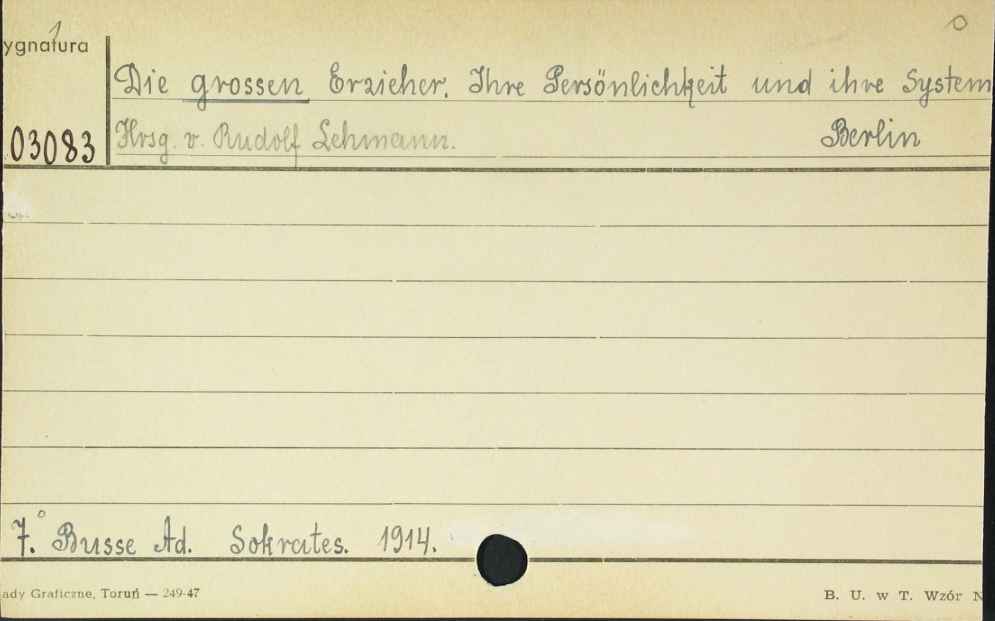 1
ygnatura
Die grossen Erzieher. Ihre Persönlichkeit und ihre System
03083 Hrsg. v. Rudolf Lehmann. Berlin
7.° Busse Ad. Sokrates. 1914.
ady Graficzne, Toruń — 249-47 B. U. w T. Wzór N